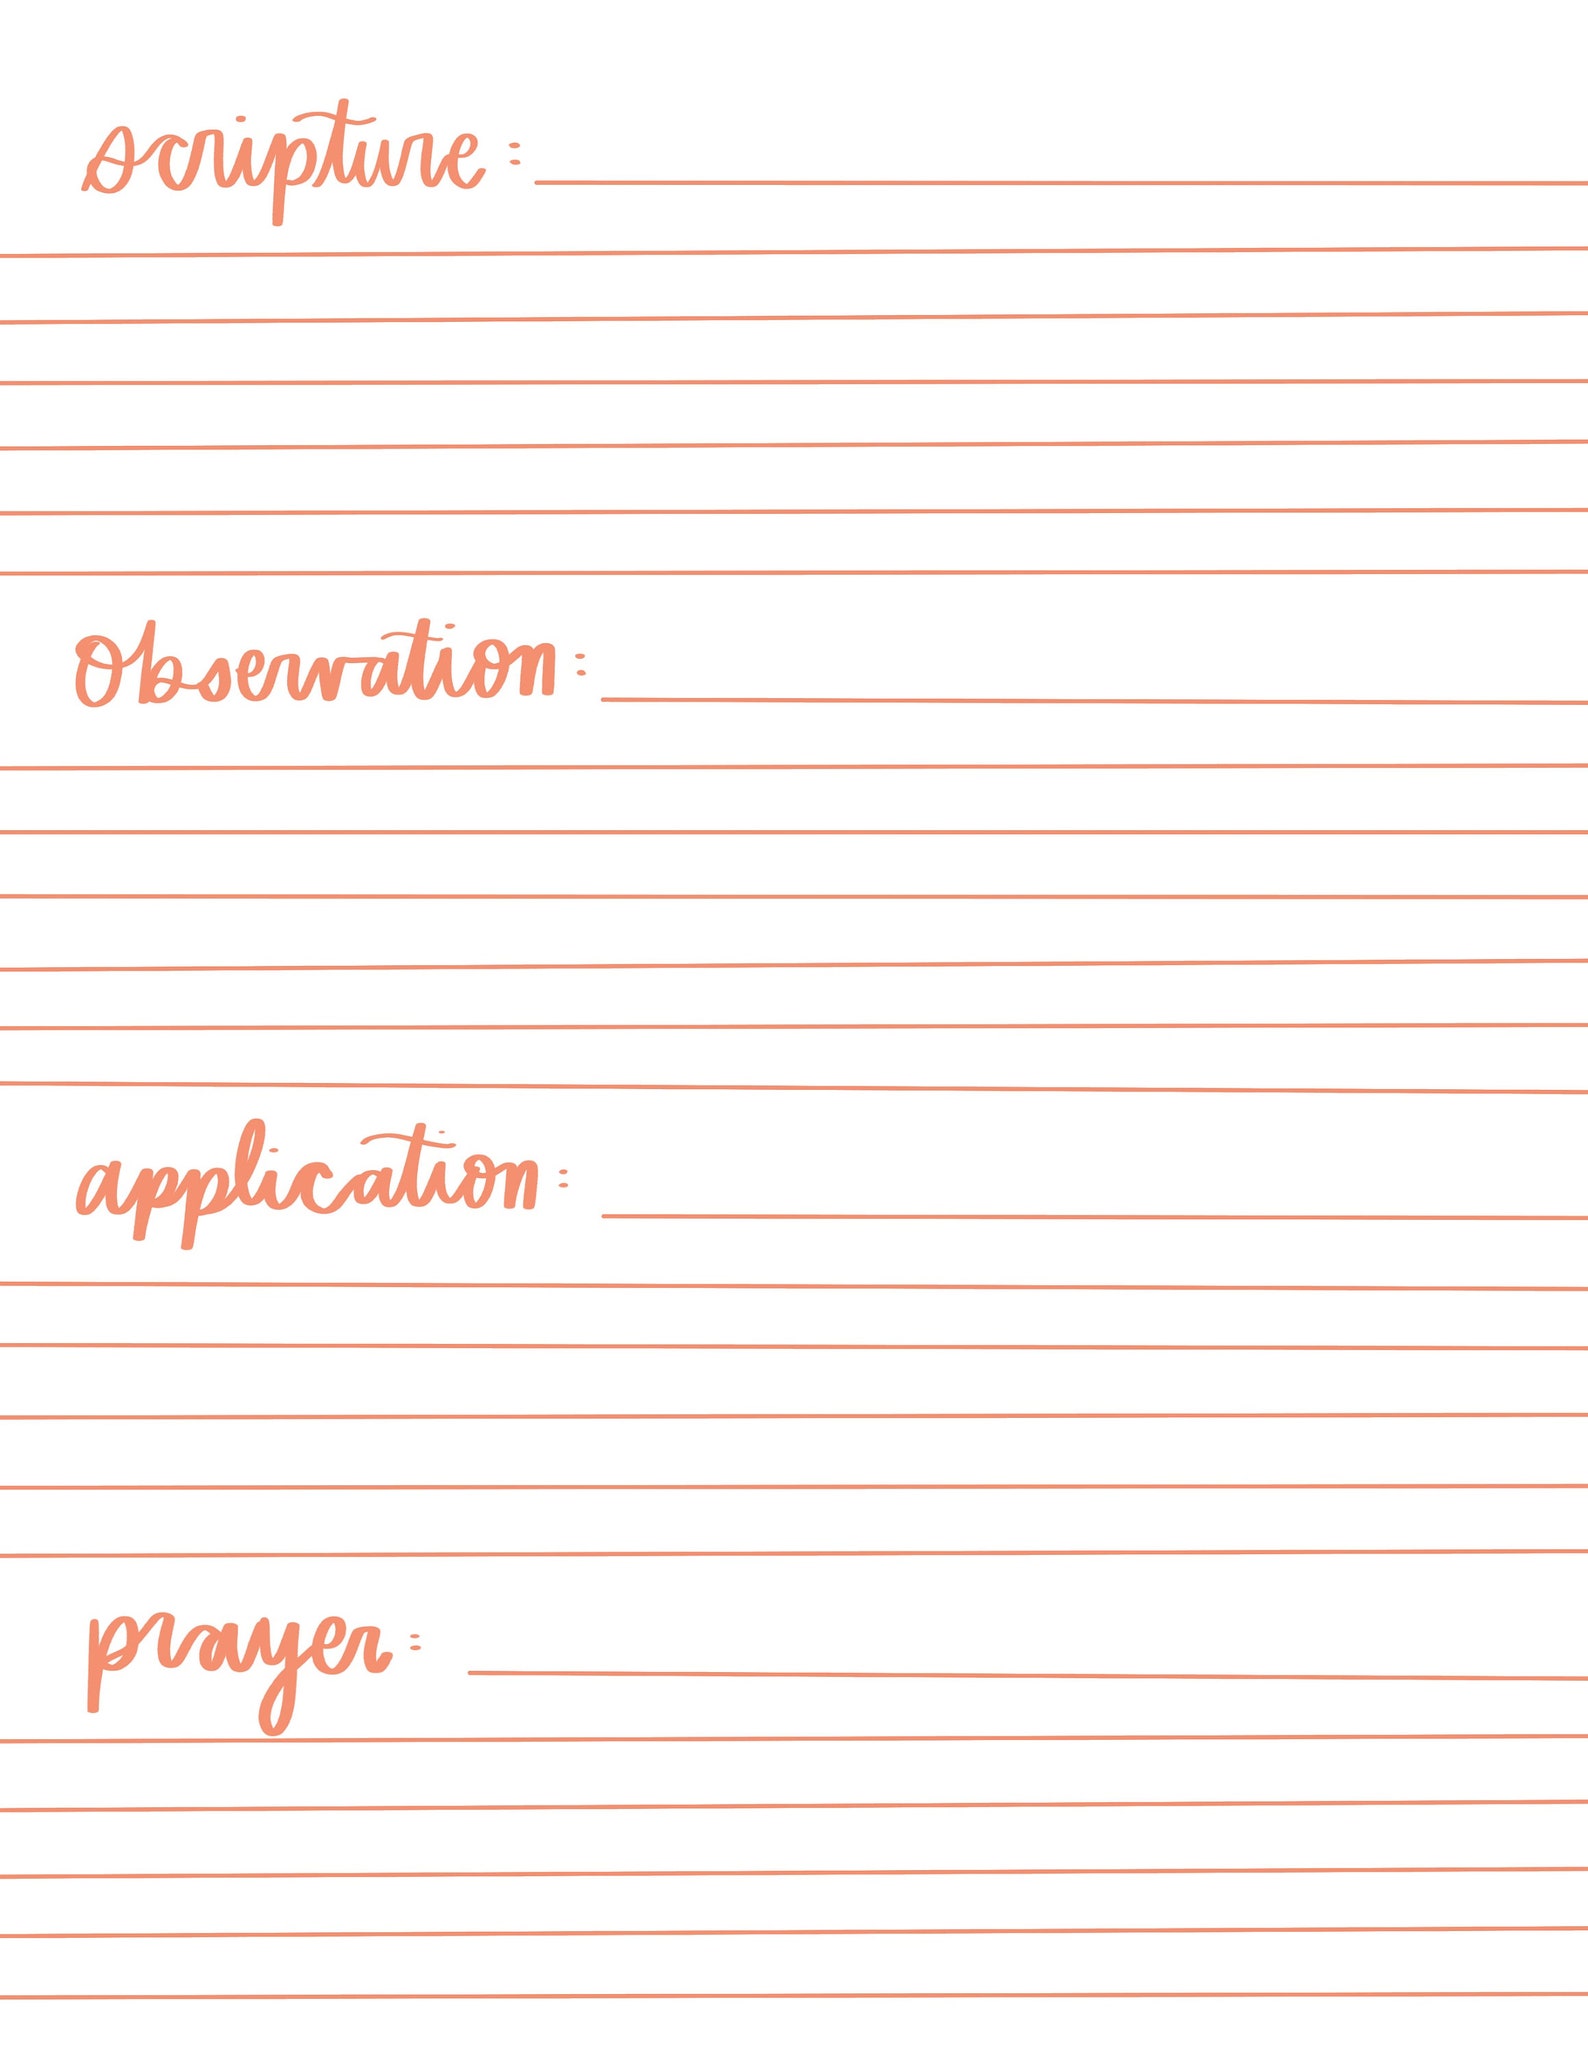 scripture:
Observation:
application:
prayer: